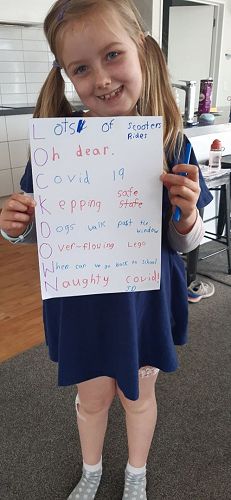 Lots of Scooters
Rides
Oh dear.
Covid 19
Kepping safe
state
Dogs walk past the
window
Over-flowing Lego
When can we go back to school
Naughty covid!